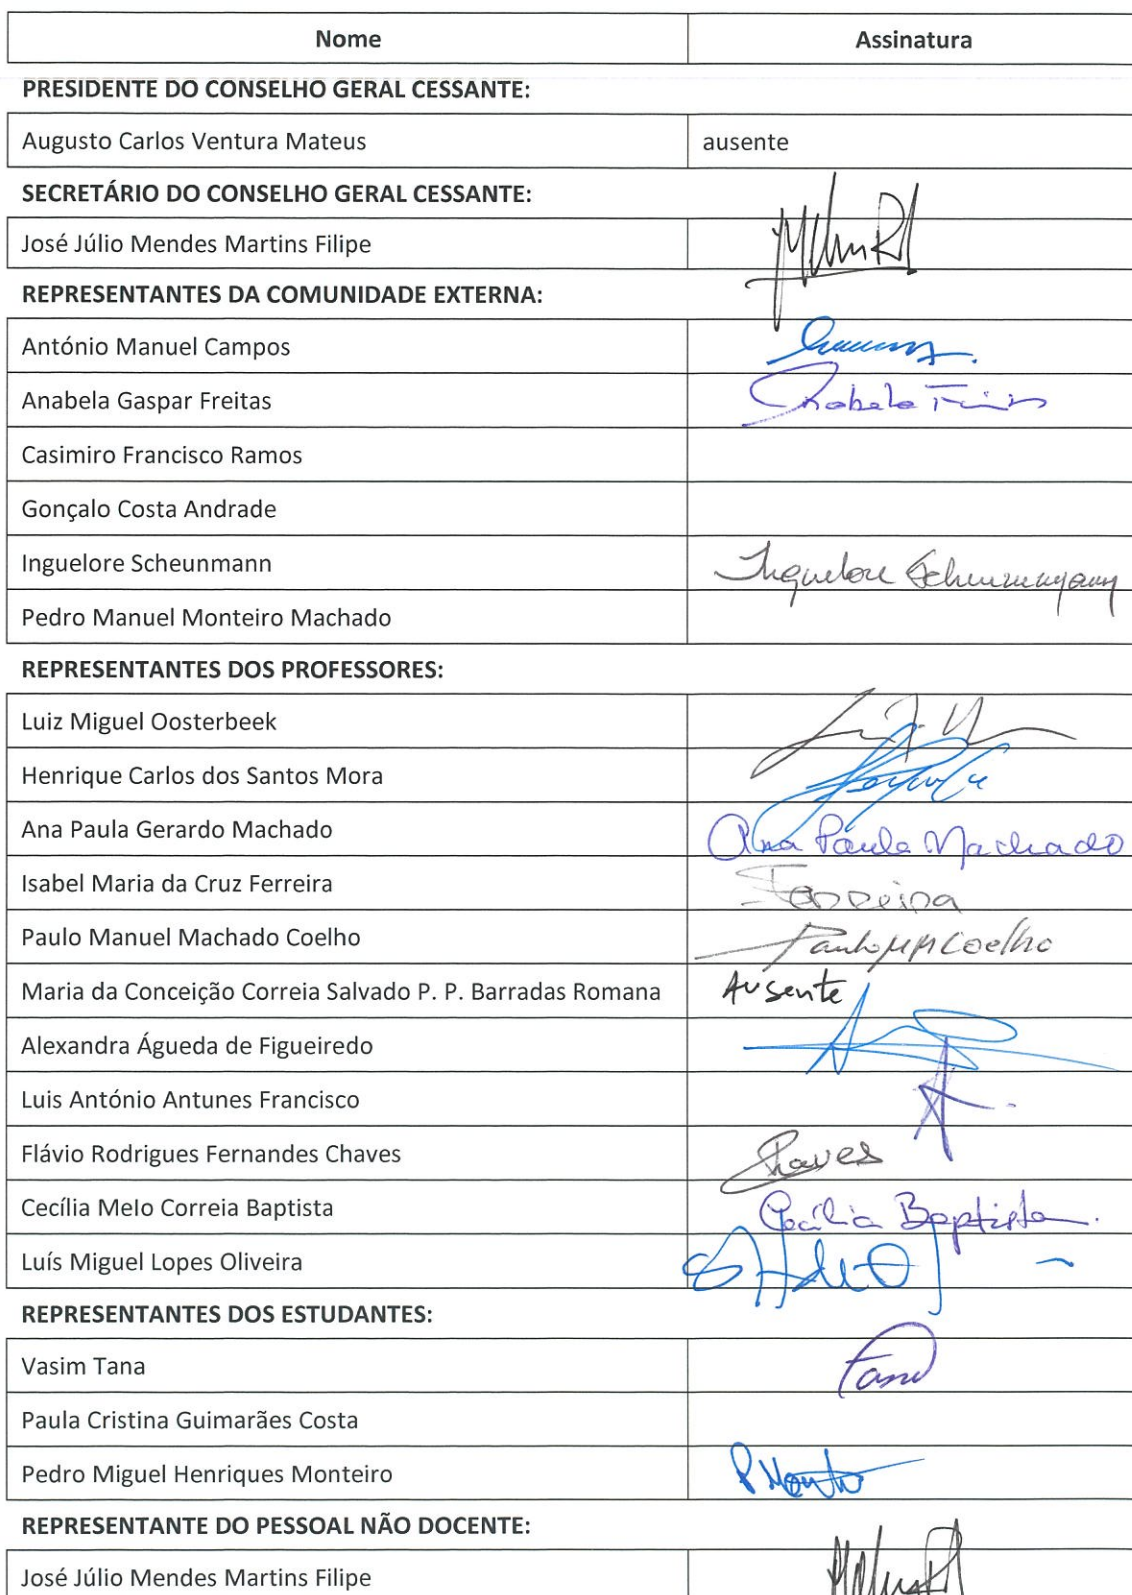 Nome Assinatura
PRESIDENTE DO CONSELHO GERAL CESSANTE:
Augusto Carlos Ventura Mateus ausente
SECRETÁRIO DO CONSELHO GERAL CESSANTE:
José Júlio Mendes Martins Filipe
REPRESENTANTES DA COMUNIDADE EXTERNA:
António Manuel Campos
Anabela Gaspar Freitas
Casimiro Francisco Ramos
Gonçalo Costa Andrade
Inguelore Scheunmann Inguelore Scheunemann
Pedro Manuel Monteiro Machado
REPRESENTANTES DOS PROFESSORES:
Luiz Miguel Oosterbeek
Henrique Carlos dos Santos Mora
Ana Paula Gerardo Machado Ana Paula Machado
Isabel Maria da Cruz Ferreira Ferreira
Paulo Manuel Machado Coelho Paulo MM Coelho
Maria da Conceição Correia Salvado P. P. Barradas Romana Ausente
Alexandra Águeda de Figueiredo
Luis António Antunes Francisco
Flávio Rodrigues Fernandes Chaves Chaves
Cecília Melo Correia Baptista Cecília Baptista.
Luís Miguel Lopes Oliveira
REPRESENTANTES DOS ESTUDANTES:
Vasim Tana Tana
Paula Cristina Guimarães Costa
Pedro Miguel Henriques Monteiro
REPRESENTANTE DO PESSOAL NÃO DOCENTE:
José Júlio Mendes Martins Filipe